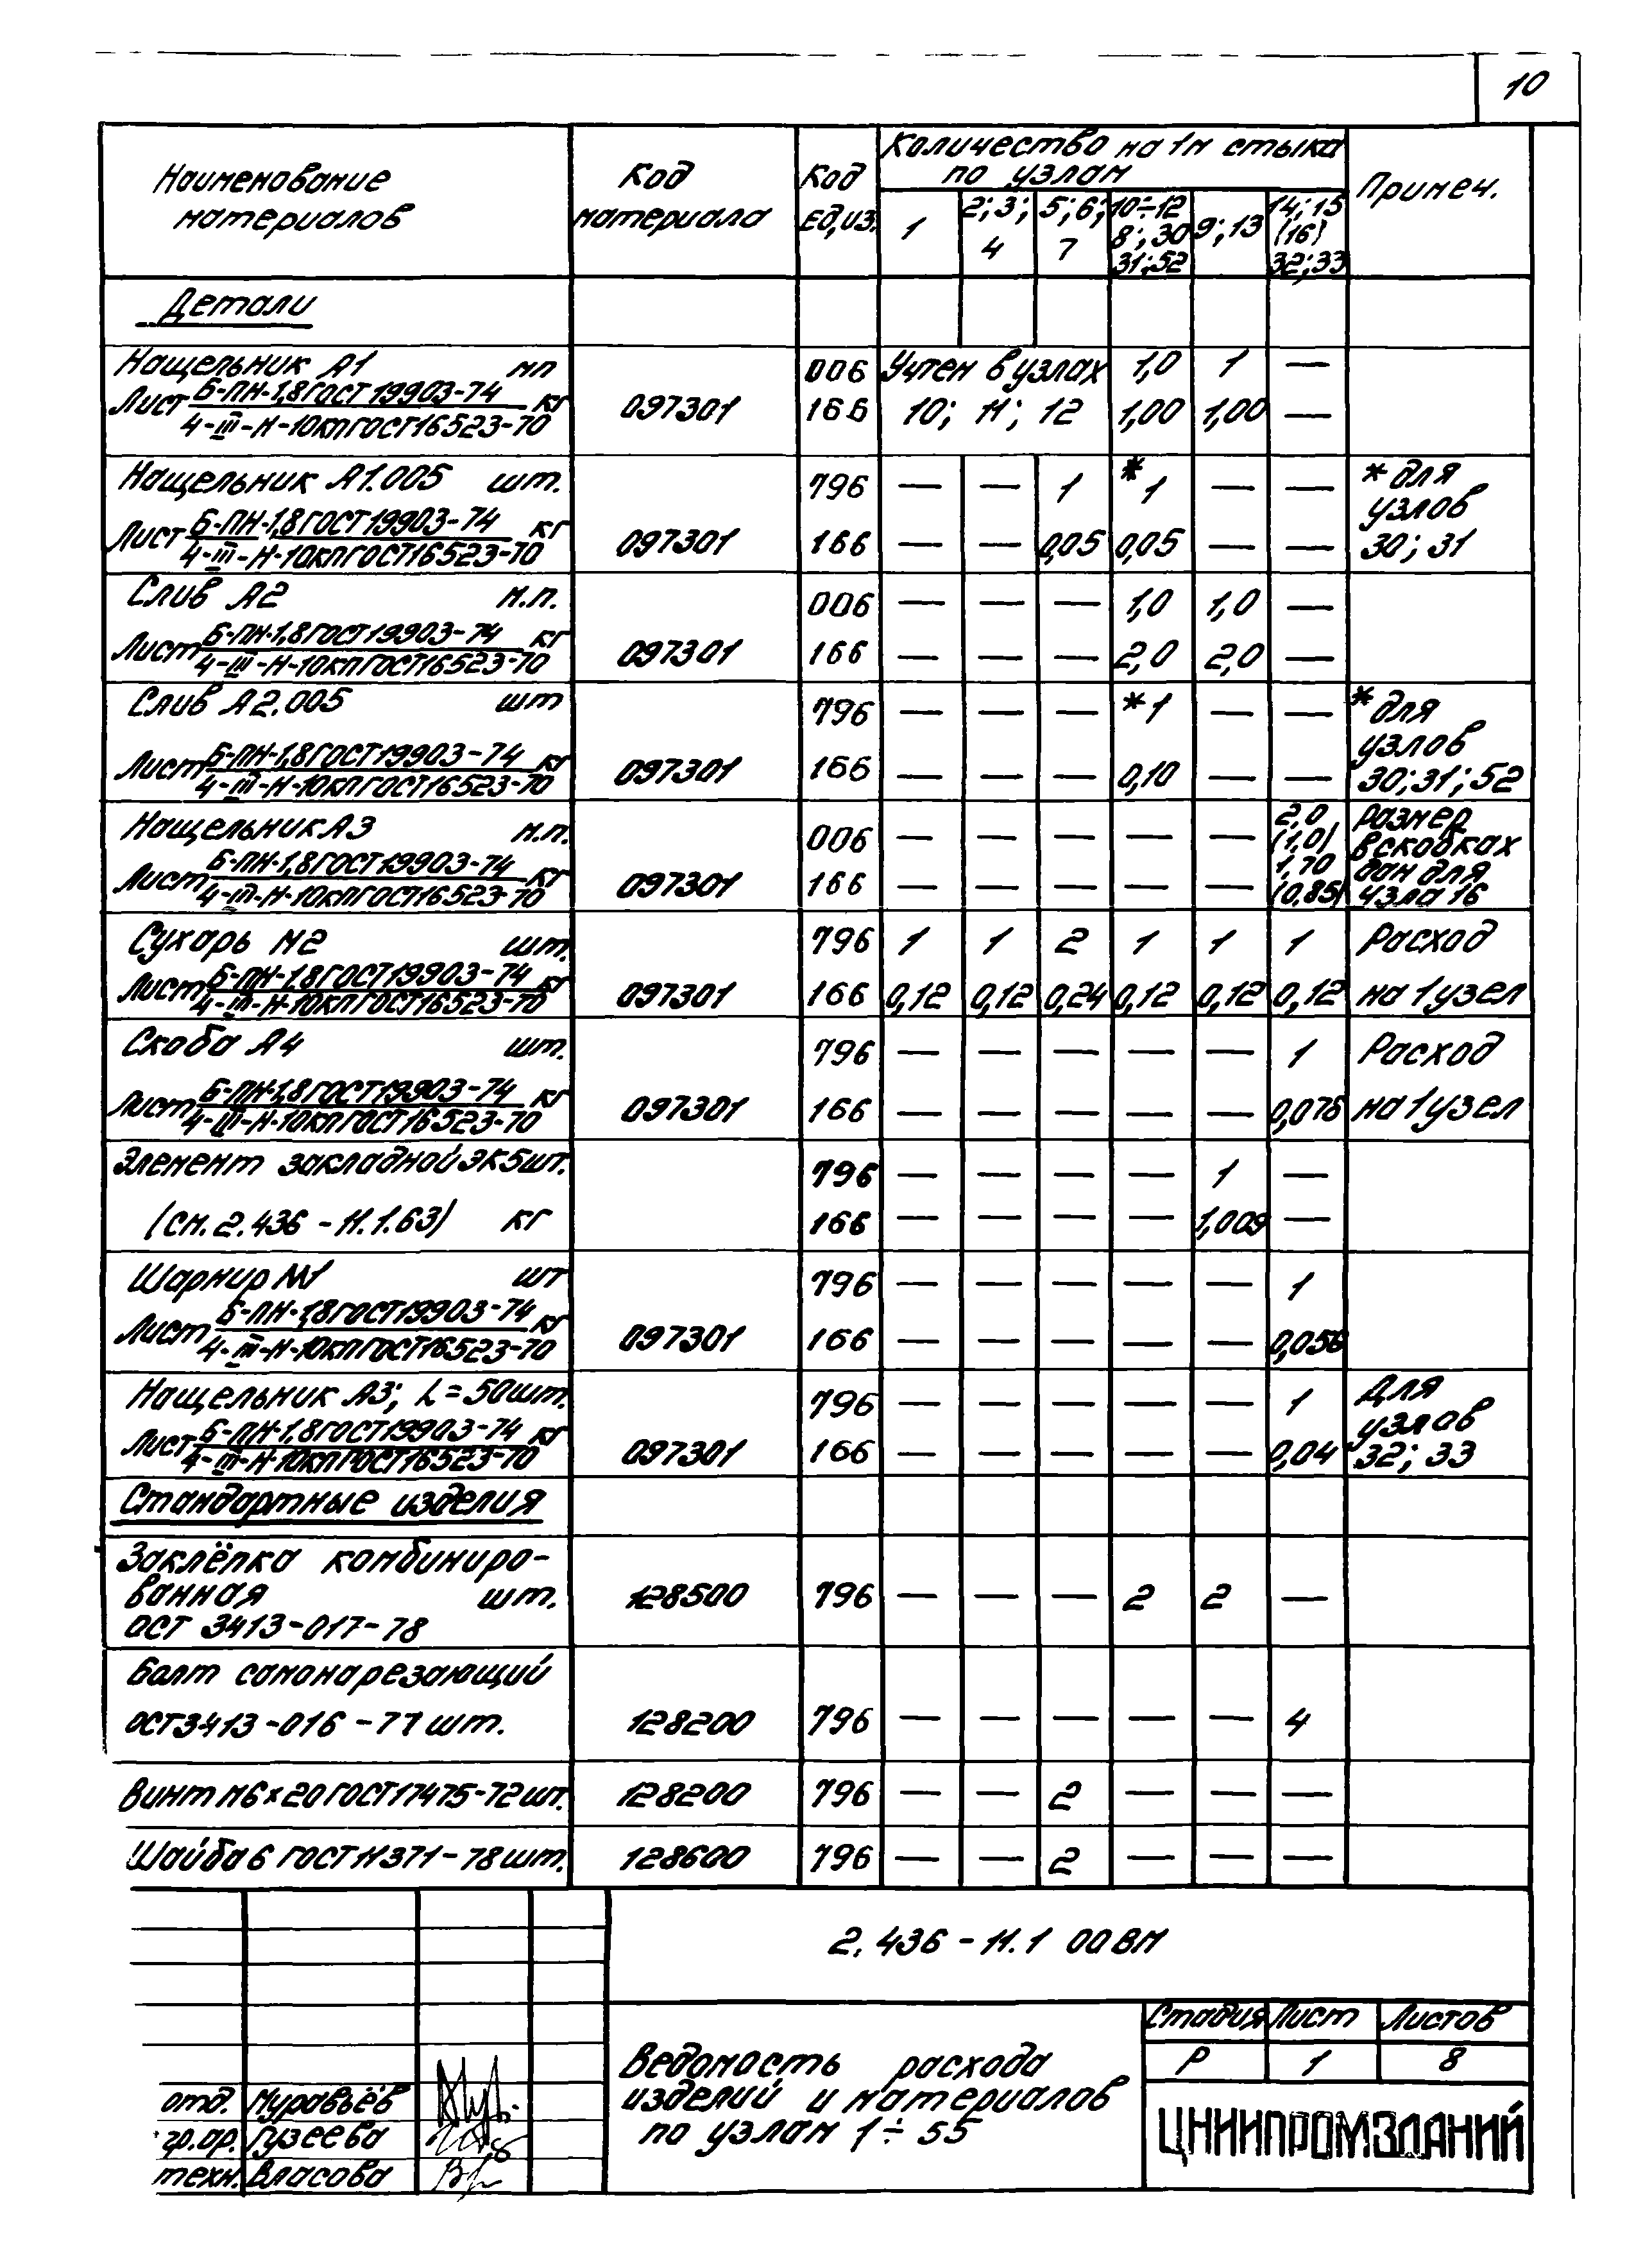 10
Наименование материалов
Код материала
Код Ед,из.
Количество на 1м стыка по узлам
1
2; 3; 4
5; 6; 7
10÷12 8; 30 31; 52
9; 13
14; 15 (16) 32; 33
Примеч.
Детали
Нащельник А1 мп 006 Учтен в узлах 1,0 1 —
Лист Б-ПН-1,8 ГОСТ 19903-74 кг 097301 166 10; 11; 12 1,00 1,00 —
4-III-Н-10кп ГОСТ 16523-70
Нащельник А1.005 шт. 796 — — 1 *1 — — * для узлов
Лист Б-ПН-1,8 ГОСТ 19903-74 кг 097301 166 — — 0,05 0,05 — — 30; 31
4-III-Н-10кп ГОСТ 16523-70
Слив А2 м.п. 006 — — — 1,0 1,0 —
Лист Б-ПН-1,8 ГОСТ 19903-74 кг 097301 166 — — — 2,0 2,0 —
4-III-Н-10кп ГОСТ 16523-70
Слив А2.005 шт 796 — — — *1 — — * для узлов
Лист Б-ПН-1,8 ГОСТ 19903-74 кг 097301 166 — — — 0,10 — — 30; 31; 52
4-III-Н-10кп ГОСТ 16523-70
Нащельник А3 м.п. 006 — — — — — 2,0 (1,0) размер в скобках
Лист Б-ПН-1,8 ГОСТ 19903-74 кг 097301 166 — — — — — 1,70 (0,85) дан для узла 16
4-III-Н-10кп ГОСТ 16523-70
Сухарь М2 шт. 796 1 1 2 1 1 1 Расход
Лист Б-ПН-1,8 ГОСТ 19903-74 кг 097301 166 0,12 0,12 0,24 0,12 0,12 0,12 на 1 узел
4-III-Н-10кп ГОСТ 16523-70
Скоба А4 шт. 796 — — — — — 1 Расход
Лист Б-ПН-1,8 ГОСТ 19903-74 кг 097301 166 — — — — — 0,075 на 1 узел
4-III-Н-10кп ГОСТ 16523-70
Элемент закладной ЭК5 шт. 796 — — — — 1 —
(см. 2.436-11.1.63) кг 166 — — — — 1,009 —
Шарнир М1 шт 796 — — — — — 1
Лист Б-ПН-1,8 ГОСТ 19903-74 кг 097301 166 — — — — — 0,056
4-III-Н-10кп ГОСТ 16523-70
Нащельник А3; L=50 шт. 796 — — — — — 1 Для узлов
Лист Б-ПН-1,8 ГОСТ 19903-74 кг 097301 166 — — — — — 0,04 32; 33
4-III-Н-10кп ГОСТ 16523-70
Стандартные изделия
Заклёпка комбиниро-
ванная шт. 128500 796 — — — 2 2 —
ОСТ 3413-017-78
Болт самонарезающий
ОСТ 3413-016-77 шт. 128200 796 — — — — — 4
Винт М6×20 ГОСТ 17475-72 шт. 128200 796 — — 2 — — —
Шайба 6 ГОСТ 11371-78 шт. 128600 796 — — 2 — — —
2.436-11.1 00ВМ
Ведомость расхода
изделий и материалов
по узлам 1÷55
Стадия Лист Листов
Р 1 8
ЦНИИПРОМЗДАНИЙ
отд. Муравьёв
гр.ар. Гузеева
техн. Власова